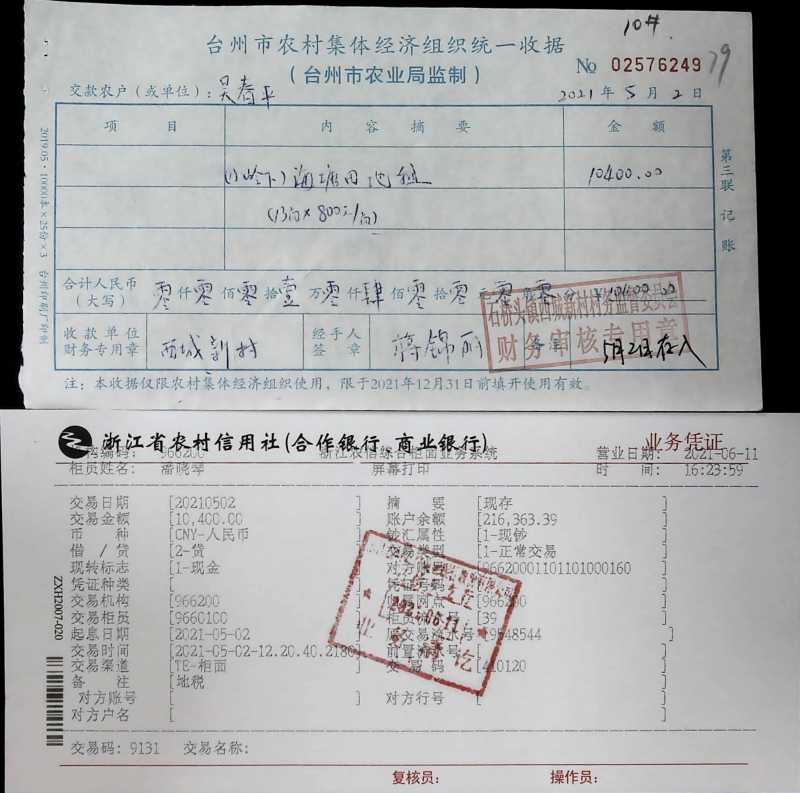 10#
台州市农村集体经济组织统一收据
(台州市农业局监制)
№ 02576249
79
交款农户(或单位):吴春平
2021年5月2日
项 目 内 容 摘 要 金 额
(小岭下)海塘田池租 10400.00
(13亩×800元/亩)
合计人民币(大写) 零仟零佰零拾壹万零仟肆佰零拾零元零角零分 ¥10400.00
收款单位财务专用章 西城新村 经手人签章 蒋锦丽 备注 5月2日存入
石桥头镇西城新村村务监督委员会
财务审核专用章
注:本收据仅限农村集体经济组织使用,限于2021年12月31日前填开使用有效。
2019.05·10000本×25份×3 台州印刷厂印制
第三联 记账
浙江省农村信用社(合作银行、商业银行) 业务凭证
机构编码: 966200 浙江农信综合柜面业务系统 营业日期: 2021-06-11
柜员姓名: 潘晓琴 屏幕打印 时 间: 16:23:59
交易日期 [20210502 ] 摘 要 [现存 ]
交易金额 [10,400.00 ] 账户余额 [216,363.39 ]
币 种 [CNY-人民币 ] 钞汇属性 [1-现钞 ]
借 / 贷 [2-贷 ] 交易类型 [1-正常交易 ]
现转标志 [1-现金 ] 对方账号 [966200011011010001 60 ]
凭证种类 [ ] 凭证号码 [ ]
交易机构 [966200 ] 网点 [966200 ]
交易柜员 [9660100 ] 柜员流水号 [39 ]
起息日期 [2021-05-02 ] 原交易流水号 [9548544 ]
交易时间 [2021-05-02-12.20.40.2180 ] 前置流水号 [ ]
交易渠道 [TE-柜面 ] 交 易 码 [410120 ]
备 注 [地税 ]
对方账号 [ ] 对方行号 [ ]
对方户名 [ ]
2021.06.11
业务清讫
交易码: 9131 交易名称:
复核员: 操作员:
ZXH2007-020